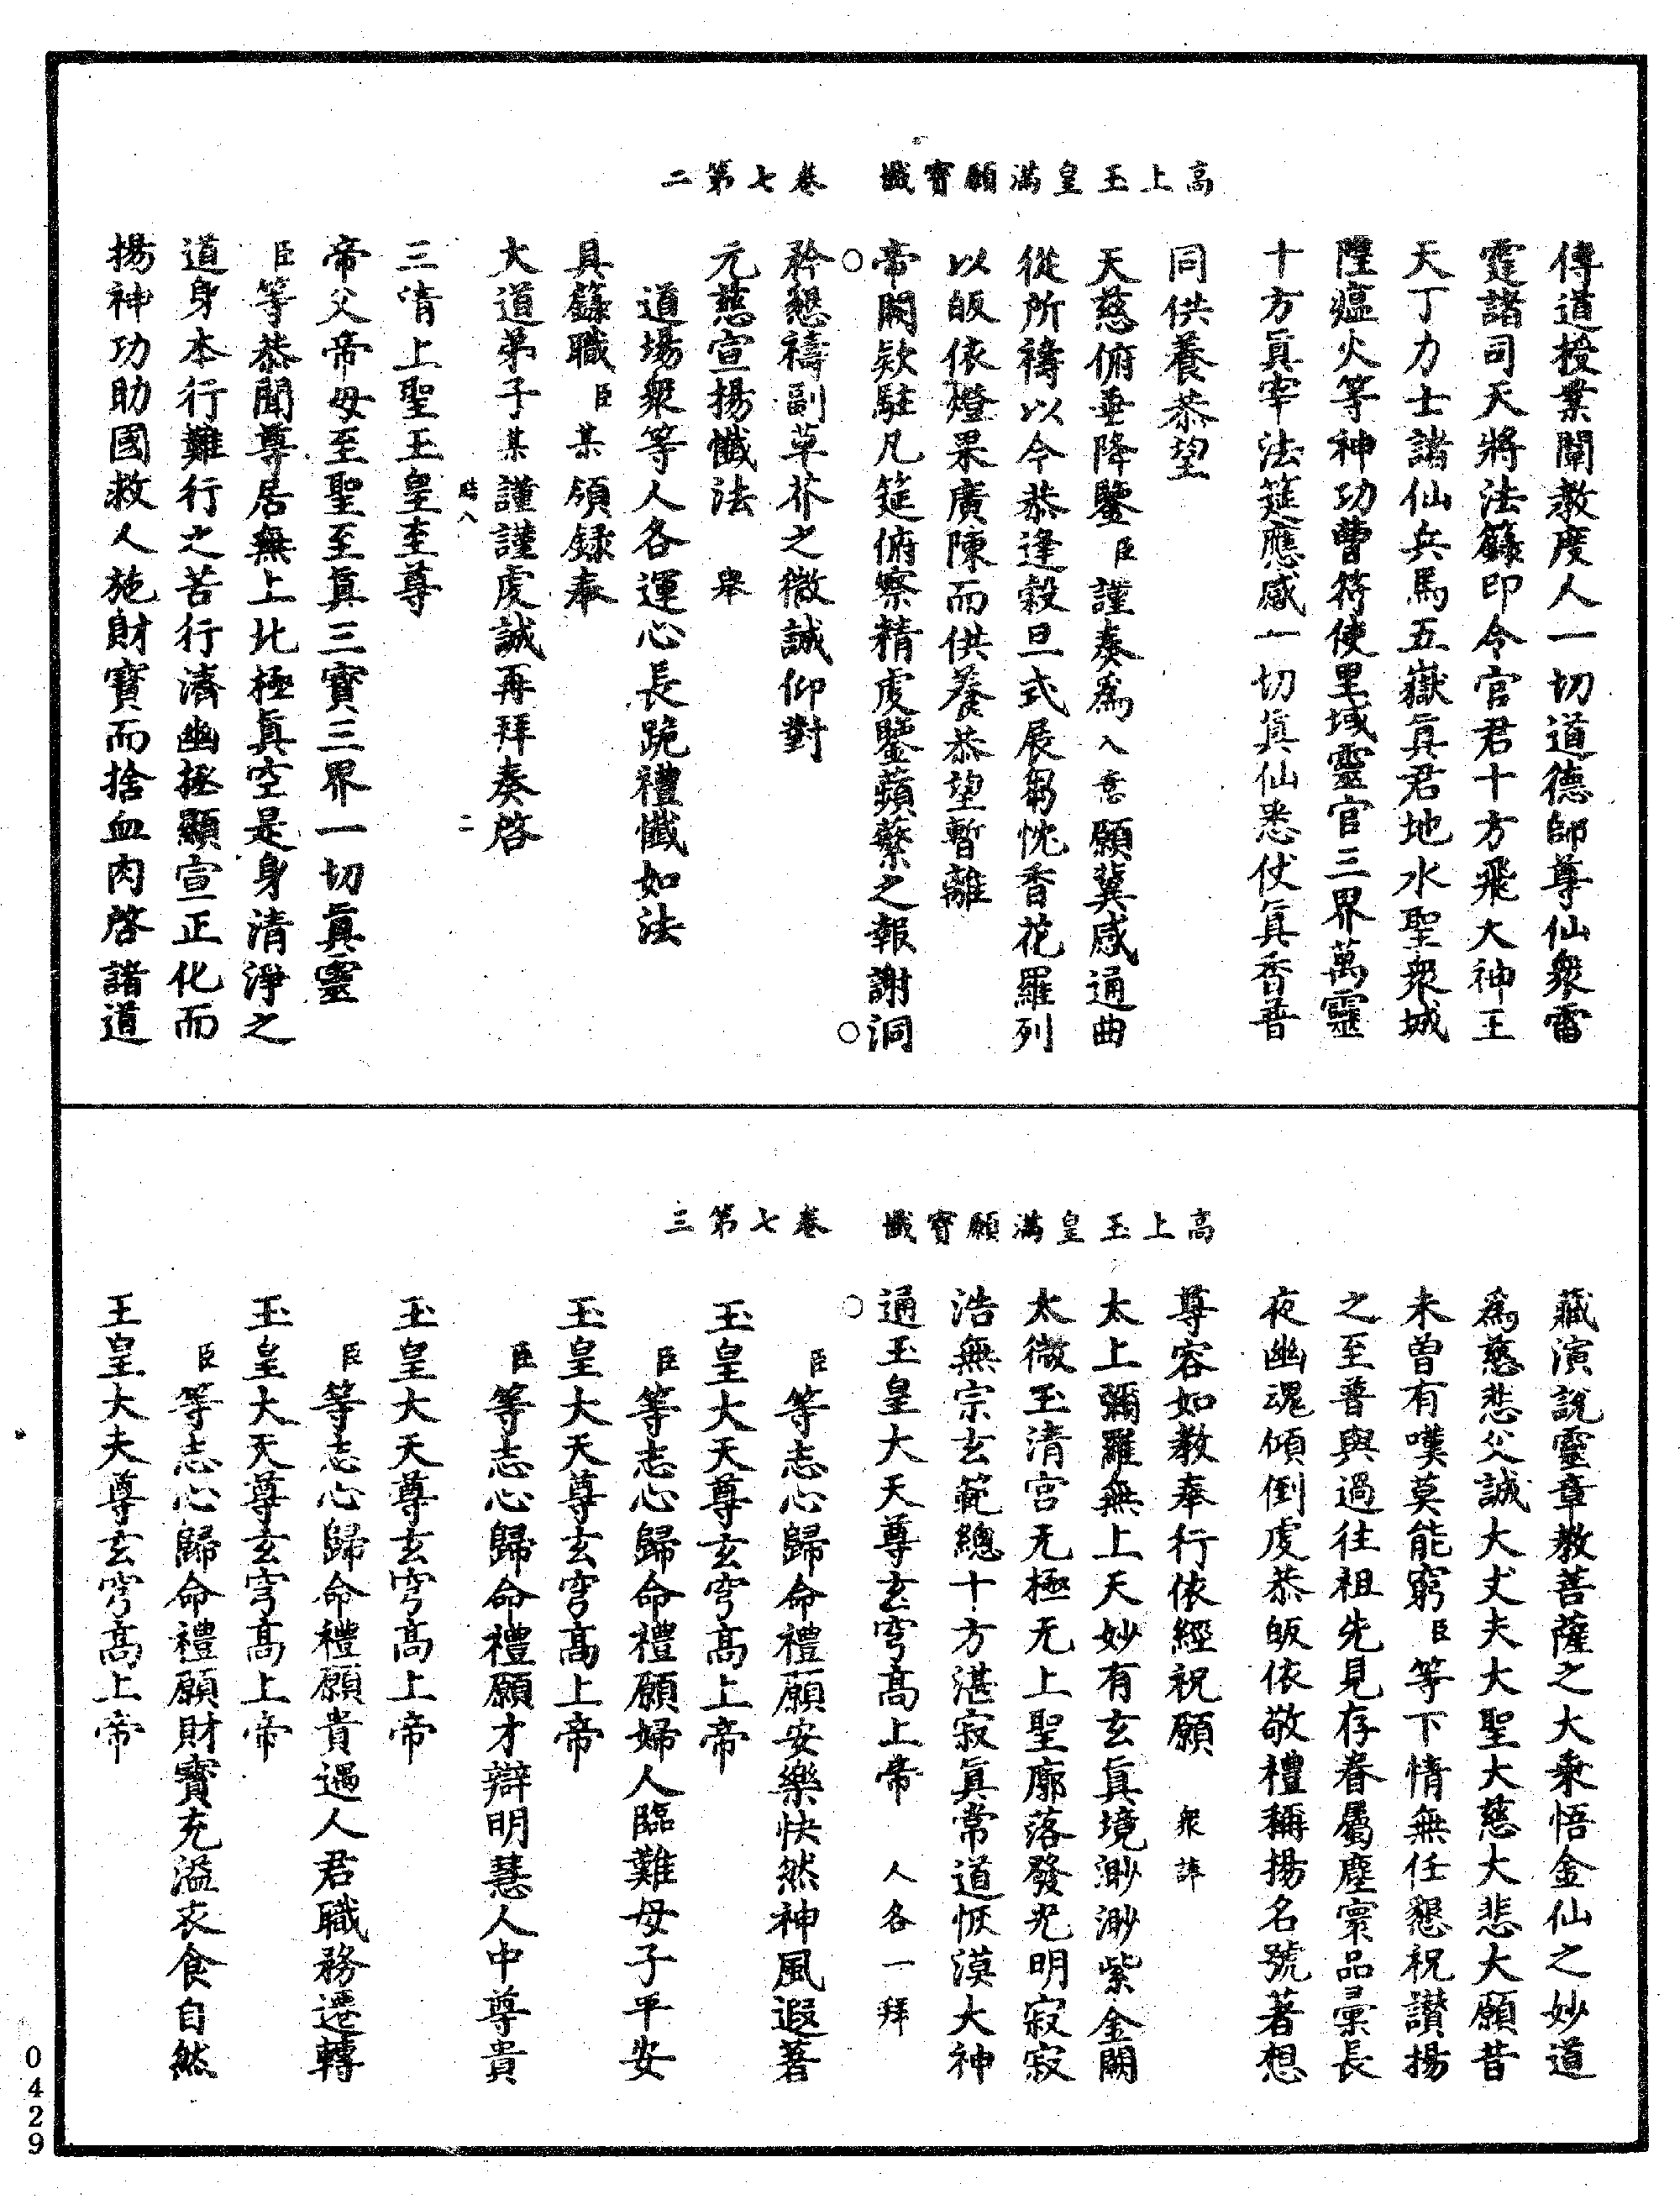 高上玉皇滿願寶懺　卷七第二
傳道授業闡教度人一切道德師尊仙衆雷
霆諸司天將法籙印令官君十方飛大神王
天丁力士諸仙兵馬五嶽眞君地水聖衆城
隍瘟火等神功曹符使里域靈官三界萬靈
十方眞宰法筵應感一切眞仙悉仗眞香普
同供養恭望
天慈俯垂降鑒臣謹奏爲入意願冀感通曲
從所禱以今恭逢穀旦式展芻忱香花羅列
以皈依燈果廣陳而供養恭望暫離
○帝闕欵駐凡筵俯察精虔鑒蘋蘩之報謝○洞
矜懇禱副草芥之微誠仰對
元慈宣揚懺法　舉
道場衆等人各運心長跪禮懺如法
具籙職臣某領録奉
大道弟子某謹謹虔誠再拜奏啓
八　二
三清上聖玉皇至尊
帝父帝母至聖至眞三寶三界一切眞靈
臣等恭聞尊居無上北極眞空是身清淨之
道身本行難行之苦行濟幽拯顯宣正化而
揚神功助國救人施財寶而捨血肉啓諸道
高上玉皇滿願寶懺　卷七第三
藏演說靈章教菩薩之大乘悟金仙之妙道
爲慈悲父誠大丈夫大聖大慈大悲大願昔
未曾有嘆莫能窮臣等下情無任懇祝讃揚
之至普與過往祖先見存眷屬塵寰品彙長
夜幽魂傾倒虔恭皈依敬禮稱揚名號著想
尊容如教奉行依經祝願　衆諱
太上彌羅無上天妙有玄眞境渺渺紫金闕
太微玉清宮无極无上聖廓落發光明寂寂
浩無宗玄範總十方湛寂眞常道恢漠大神
○通玉皇大天尊玄穹高上帝　人各一拜
臣等志心歸命禮願安樂快然神風遐著
玉皇大天尊玄穹高上帝
臣等志心歸命禮願婦人臨難母子平安
玉皇大天尊玄穹高上帝
臣等志心歸命禮願才辯明慧人中尊貴
玉皇大天尊玄穹高上帝
臣等志心歸命禮願貴遇人君職務遷轉
玉皇大天尊玄穹高上帝
臣等志心歸命禮願財寶充溢衣食自然
王皇大夫尊玄穹高上帝
0429